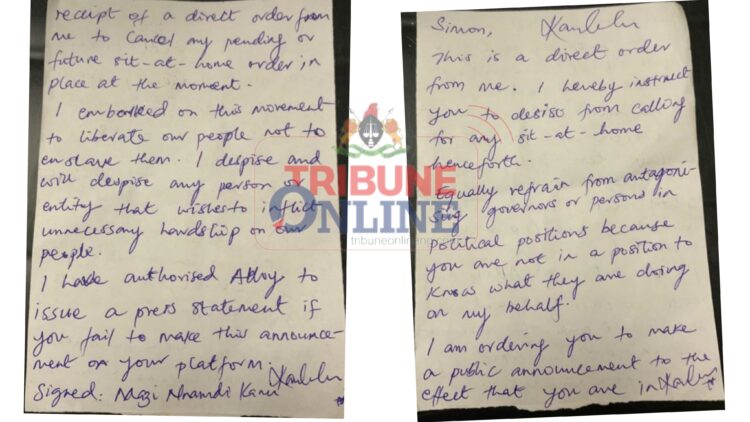 Simon, Kanulu
This is a direct order
from me. I hereby instruct
you to desist from calling
for any sit-at-home
henceforth.
Equally refrain from antagoni-
sing governors or persons in
political positions because
you are not in a position to
know what they are doing
on my behalf.
I am ordering you to make
a public announcement to the
effect that you are in
receipt of a direct order from
me to cancel any pending or
future sit-at-home order in
place at the moment.
I embarked on this movement
to liberate our people not to
enslave them. I despise and
will despise any person or
entity that wishes to inflict
unnecessary hardship on our
people.
I have authorised Alloy to
issue a press statement if
you fail to make this announce-
ment on your platform.
Signed: Mazi Nnamdi Kanu
TRIBUNE
ONLINE